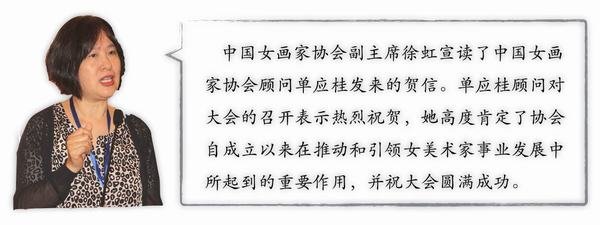 中国女画家协会副主席徐虹宣读了中国女画
家协会顾问单应桂发来的贺信。单应桂顾问对
大会的召开表示热烈祝贺，她高度肯定了协会
自成立以来在推动和引领女美术家事业发展中
所起到的重要作用，并祝大会圆满成功。